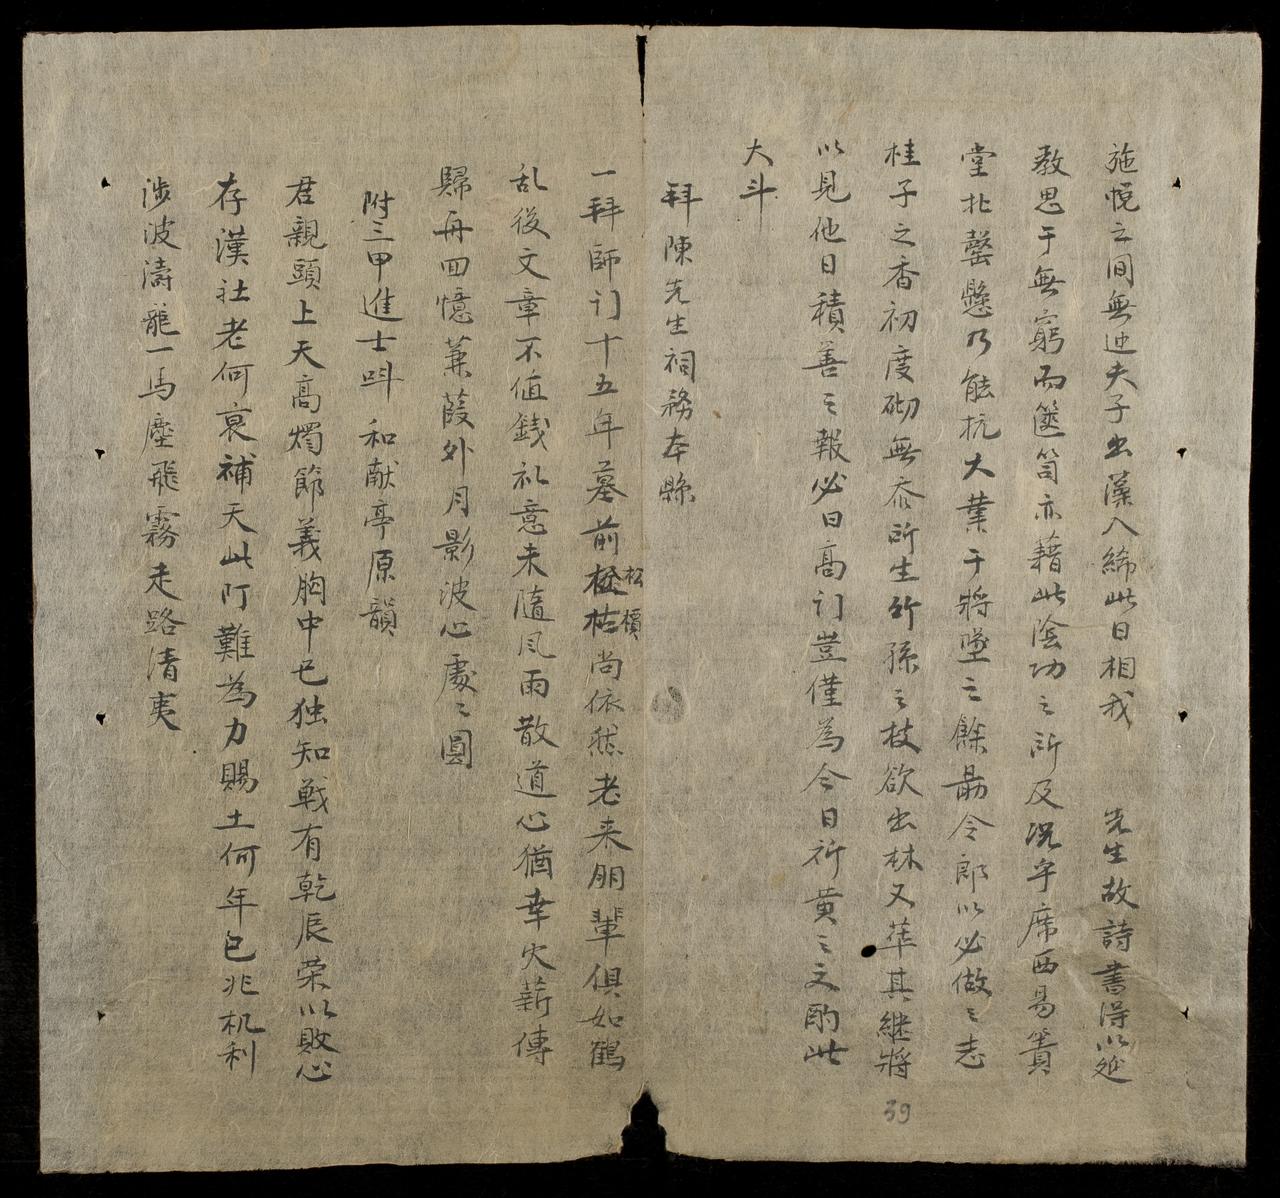 施悅之间無迚夫子出藻入締此日相我　先生故詩書得以延
教思于無窮而篋笥亦藉此陰功之所及况乎席西易簀
堂北罄懸乃能抗大業于將墜之餘勗令郎以必做〻志
桂子之香初度砌無忝所生竹孫之枝欲出林又葶其継將
以見他日積善〻報必曰高门豈僅為今日祈黄〻文酌此
大斗
拜陳先生祠務本縣
一拜師门十五年墓前松檟尚依然老来朋輩俱如鶴
乱後文章不值銭礼意未隨风雨散道心猶幸火薪傳
歸舟回憶蒹葭外月影波心處〻圓
附三甲進士呌和献亭原韻
君親頭上天高燭節義胸中已独知戦有乾辰荣以敗心
存漢社老何衰補天此阿難為力賜土何年已兆机利
涉波濤龍一馬塵飛霧走路清夷
39